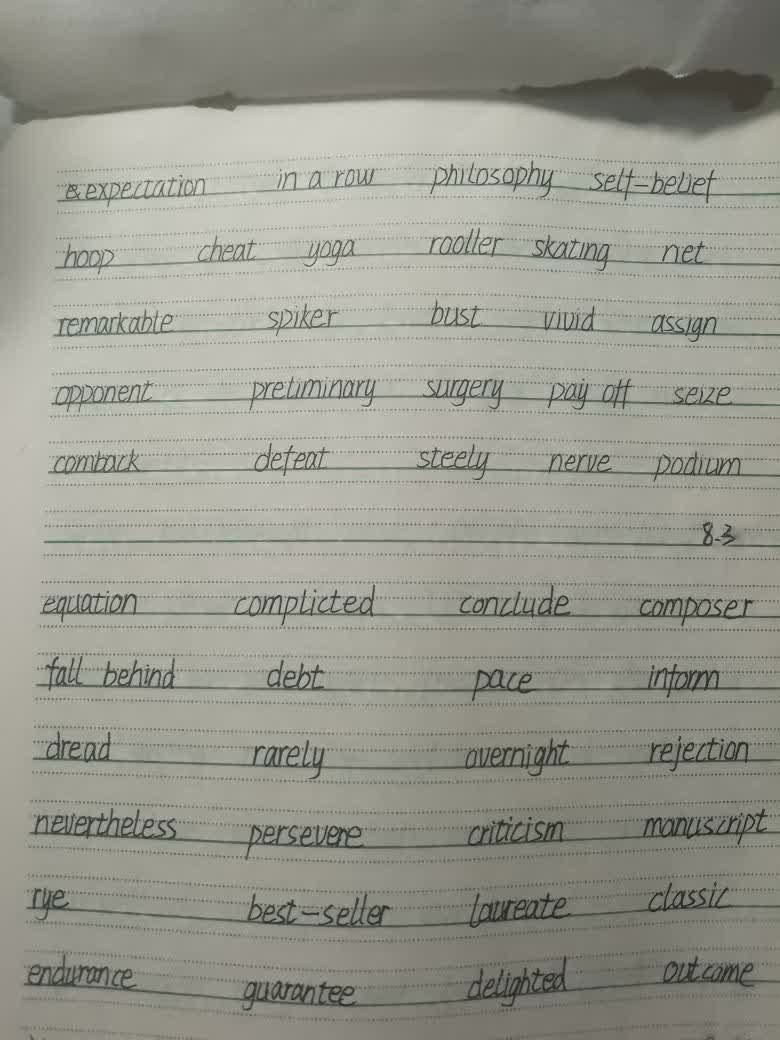 &expectation in a row philosophy self-belief
hoop cheat yoga rooller skating net
remarkable spiker bust vivid assign
opponent preliminary surgery pay off seize
comback defeat steely nerve podium
8.3
equation complicted conclude composer
fall behind debt pace inform
dread rarely overnight rejection
nevertheless persevere criticism manuscript
rye best-seller laureate classic
endurance guarantee delighted outcome